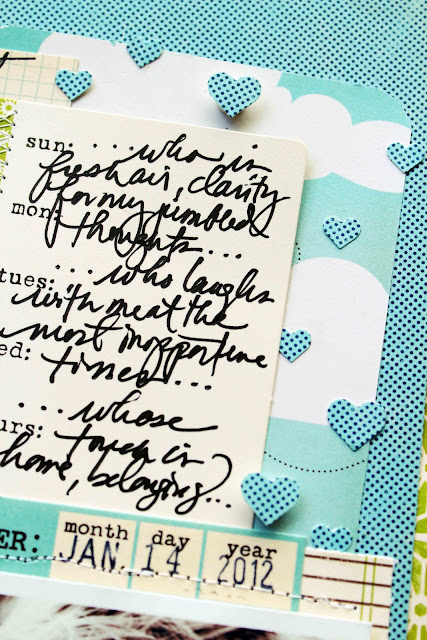 sun: ...who is
fresh air, clarity
for my jumbled
mon: thoughts...
tues: ...who laughs
with me at the
most inopportune
ed: times...
...whose
urs: touch is
home, belonging...
month day year
ER: JAN. 14 2012